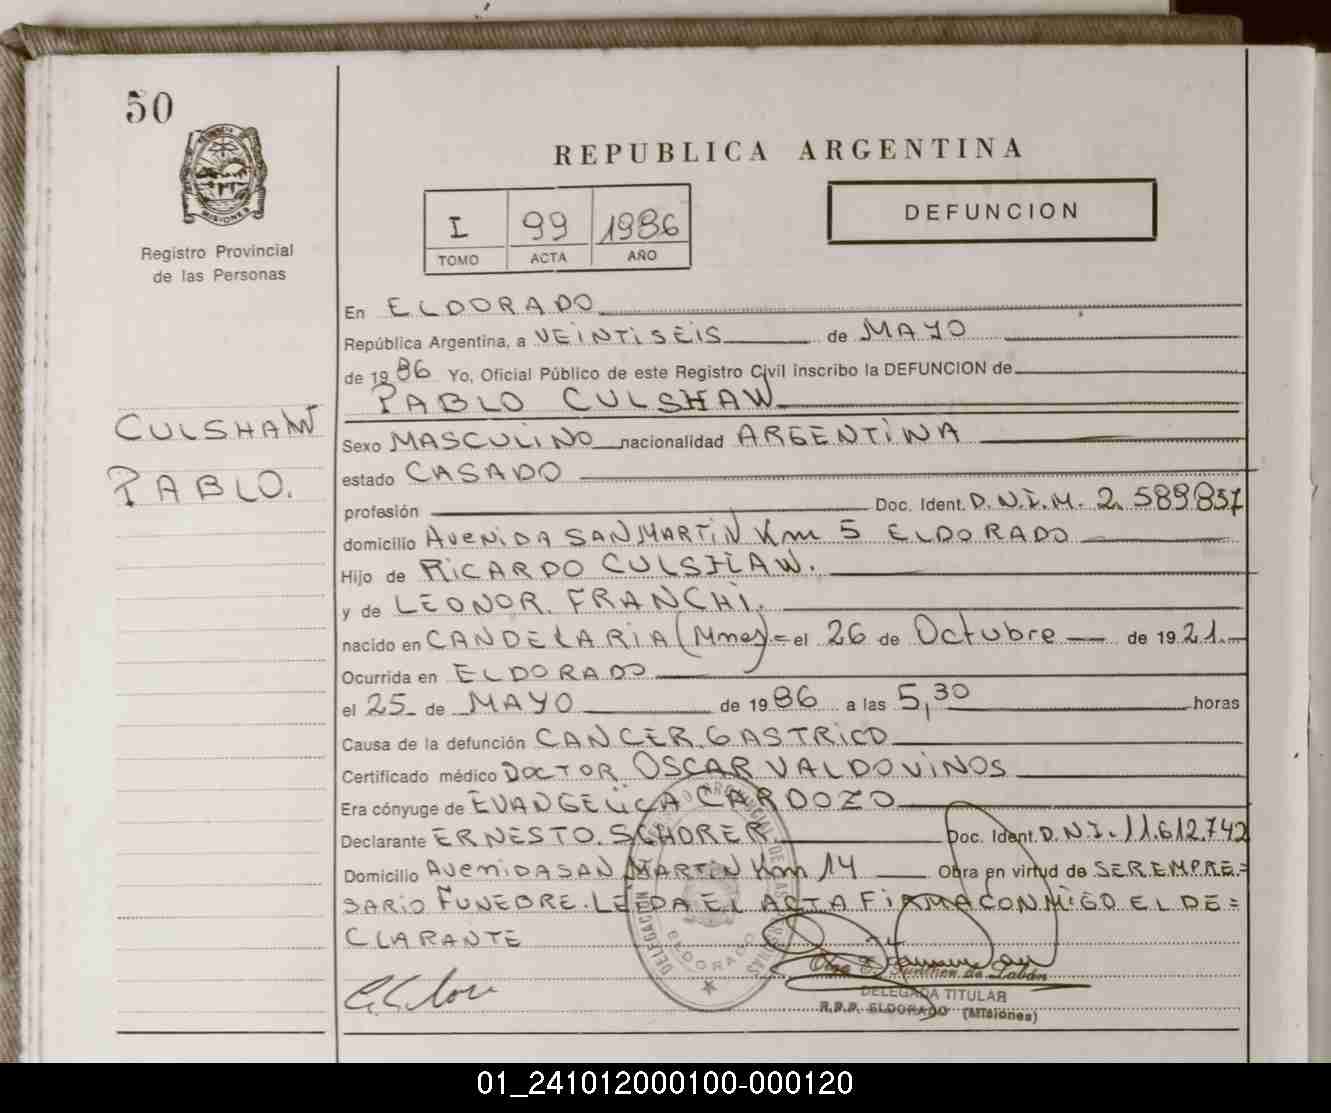 50
MISIONES
Registro Provincial
de las Personas
REPUBLICA ARGENTINA
I 99 1986
TOMO ACTA AÑO
DEFUNCION
En ELDORADO
República Argentina, a VEINTISEIS de MAYO
de 1986 Yo, Oficial Público de este Registro Civil inscribo la DEFUNCION de
PABLO CULSHAW
CULSHAW
PABLO.
Sexo MASCULINO nacionalidad ARGENTINA
estado CASADO
profesión Doc. Ident. D.N.I.M. 2.589.857
domicilio AVENIDA SAN MARTIN Km 5 ELDORADO
Hijo de RICARDO CULSHAW.
y de LEONOR. FRANCHI.
nacido en CANDELARIA (Mnes)= el 26 de Octubre de 1921.
Ocurrida en ELDORADO
el 25 de MAYO de 1986 a las 5,30 horas
Causa de la defunción CANCER GASTRICO
Certificado médico DOCTOR OSCAR VALDOVINOS
Era cónyuge de EVANGELICA CARDOZO
Declarante ERNESTO. SCHORER Doc. Ident. D.N.I. 11.612.742
Domicilio AVENIDA SAN MARTIN Km 14 Obra en virtud de SER EMPRE=
SARIO FUNEBRE. LEIDA EL ACTA FIRMA CONMIGO EL DE=
CLARANTE
DELEGACION
ELDORADO
DELEGADA TITULAR
R.P.P. ELDORADO (Misiones)
01_241012000100-000120